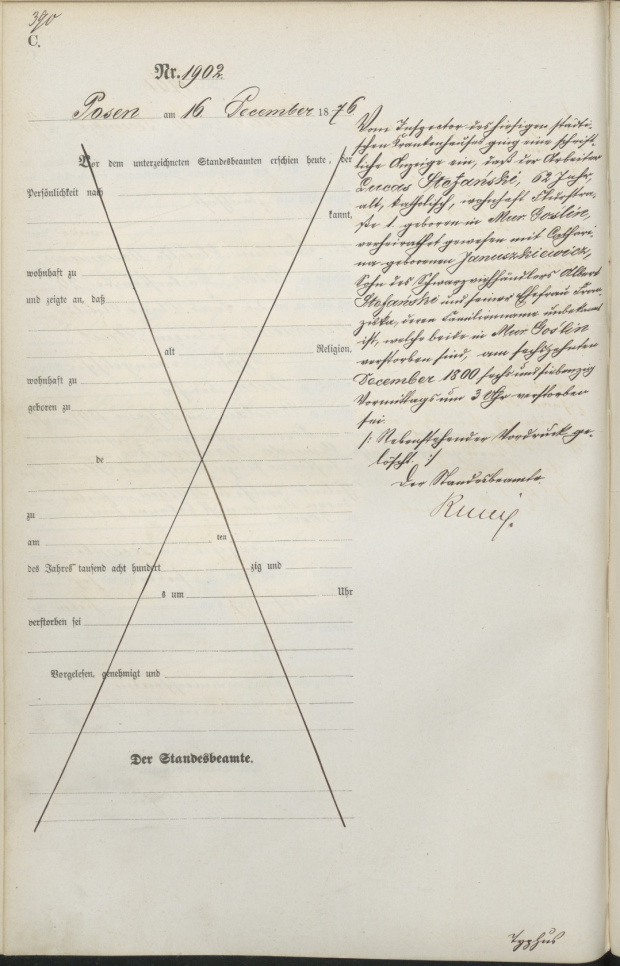 390
C.
Nr. 1902.
Posen am 16. December 1876
Vor dem unterzeichneten Standesbeamten erschien heute, der
Persönlichkeit nach
kannt,
wohnhaft zu
und zeigte an, daß
alt Religion,
wohnhaft zu
geboren zu
de
zu
am ten
des Jahres tausend acht hundert zig und
s um Uhr
verstorben sei
Vorgelesen, genehmigt und
Der Standesbeamte.
Vom Inspector des hiesigen städti-
schen Krankenhauses ging eine schrift-
liche Anzeige ein, daß der Arbeiter
Lucas Stefanski, 62 Jahr
alt, katholisch, wohnhaft
ße 1. geboren in Mur. Goslin,
verheirathet gewesen mit Cathari-
na geborenen Januszkiewicz,
Sohn des Schwarzviehhändlers Albert
Stefanski und seiner Ehefrau Fran-
ziska, deren Familienname unbekannt
ist, welche beide in Mur. Goslin
verstorben sind, am sechszehnten
December 1800 sechs und siebenzig
Vormittags um 3 Uhr verstorben
sei.
/: Nebenstehender Vordruck ge-
löscht. :/
Der Standesbeamte
Typhus